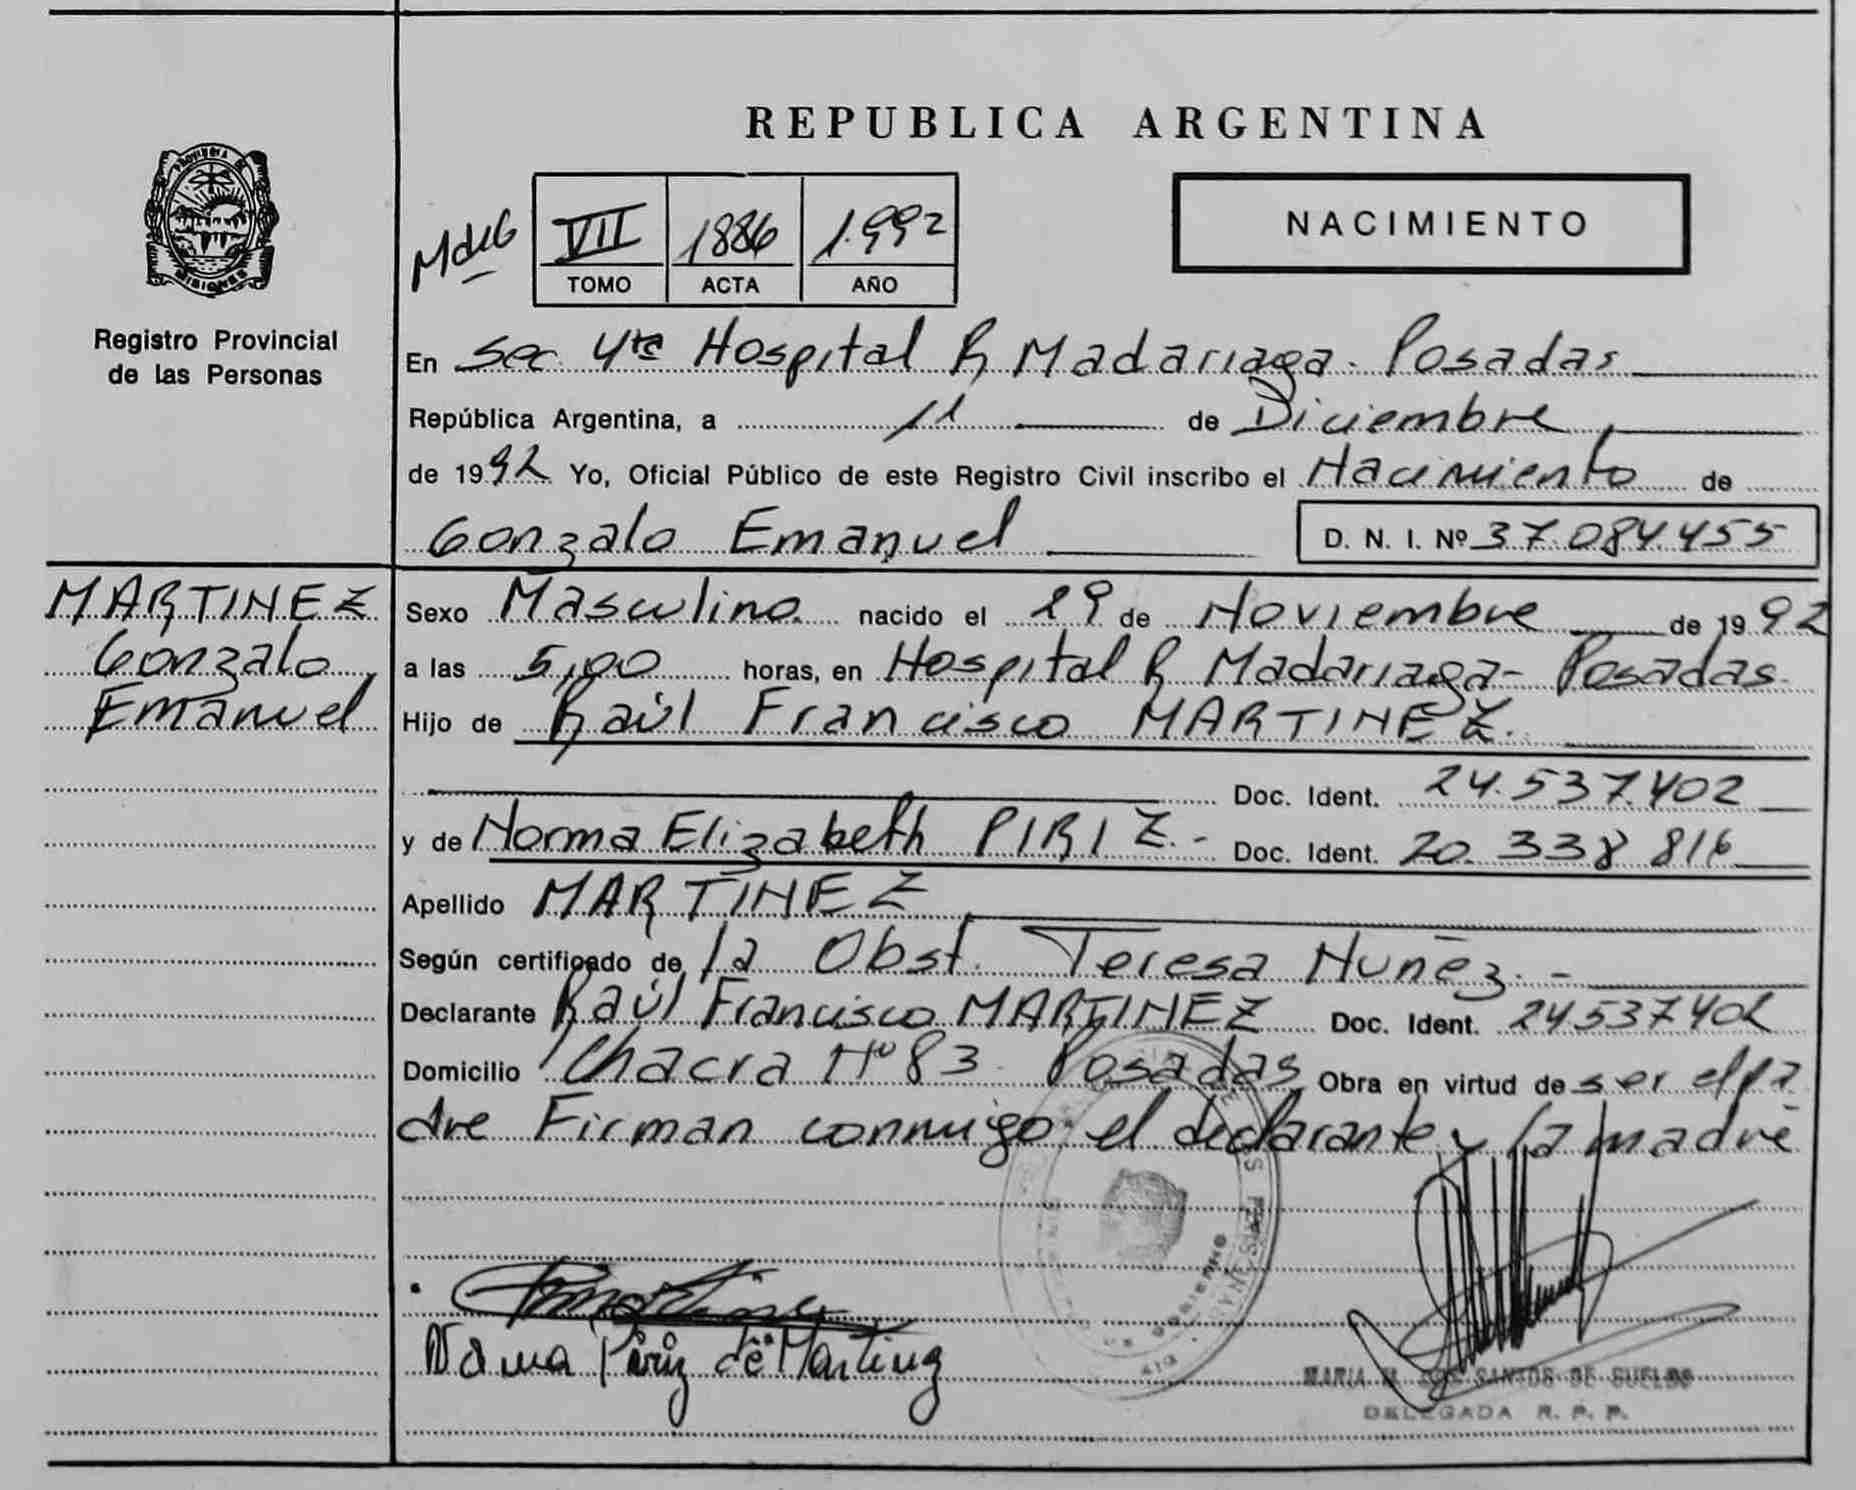 REPUBLICA ARGENTINA
PROVINCIA DE
MISIONES
Registro Provincial
de las Personas
VII 1886 1.992
TOMO ACTA AÑO
NACIMIENTO
En Sec. 4ta Hospital R Madariaga - Posadas
República Argentina, a 11 de Diciembre
de 1992 Yo, Oficial Público de este Registro Civil inscribo el Nacimiento de
Gonzalo Emanuel D. N. I. Nº 37.084.455
MARTINEZ
Gonzalo
Emanuel
Sexo Masculino. nacido el 29 de Noviembre de 1992
a las 5,00 horas, en Hospital R Madariaga - Posadas
Hijo de Raúl Francisco MARTINEZ.
Doc. Ident. 24.537.402
y de Norma Elizabeth PIRIZ.- Doc. Ident. 20.338 816
Apellido MARTINEZ
Según certificado de la Obst. Teresa Nuñez.-
Declarante Raúl Francisco MARTINEZ Doc. Ident. 24537402
Domicilio Chacra Nº 83 - Posadas Obra en virtud de ser el pa
dre Firman conmigo el declarante y la madre
Norma Piriz de Martinez
MARIA M. DOS SANTOS DE SUELDO
DELEGADA R. P. P.